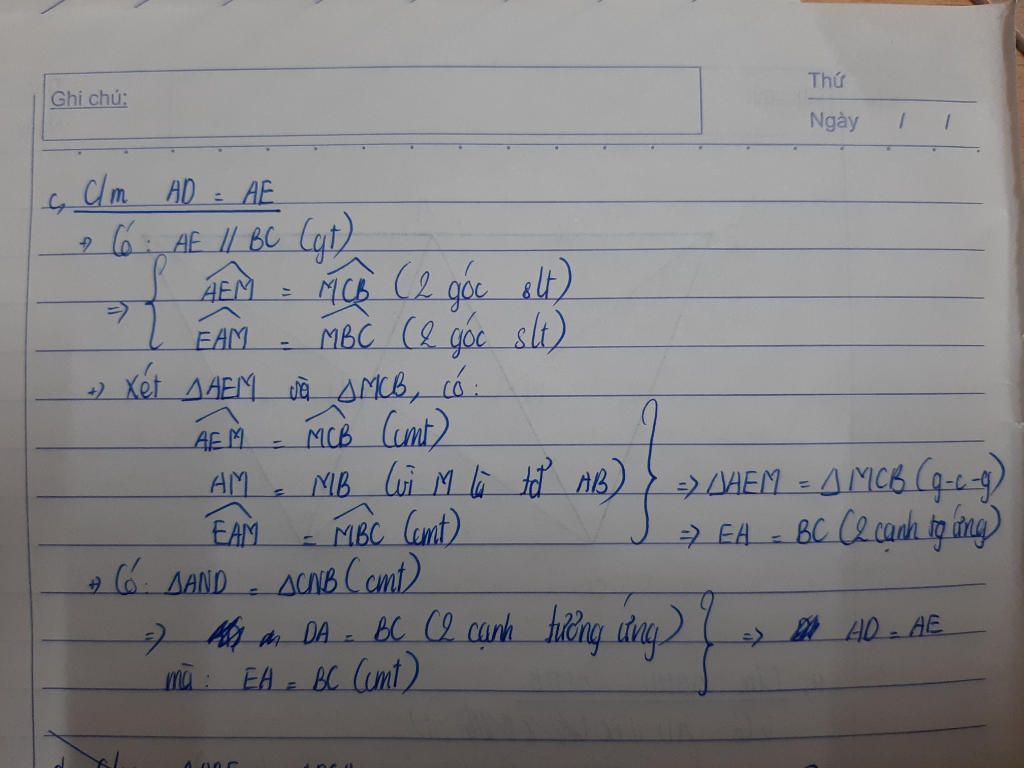 Ghi chú:
Thứ
Ngày / /
c, C/m AD = AE
+) Có: AE // BC (gt)
=> { AEM = MCB (2 góc slt)
EAM = MBC (2 góc slt)
+) Xét ΔAEM và ΔMCB, có:
AEM = MCB (cmt)
AM = MB (vì M là tđ AB) } => ΔAEM = ΔMCB (g-c-g)
EAM = MBC (cmt) => EA = BC (2 cạnh tg ứng)
+) Có: ΔAND = ΔCNB (cmt)
=> DA = BC (2 cạnh tương ứng) } => AD = AE
mà: EA = BC (cmt)